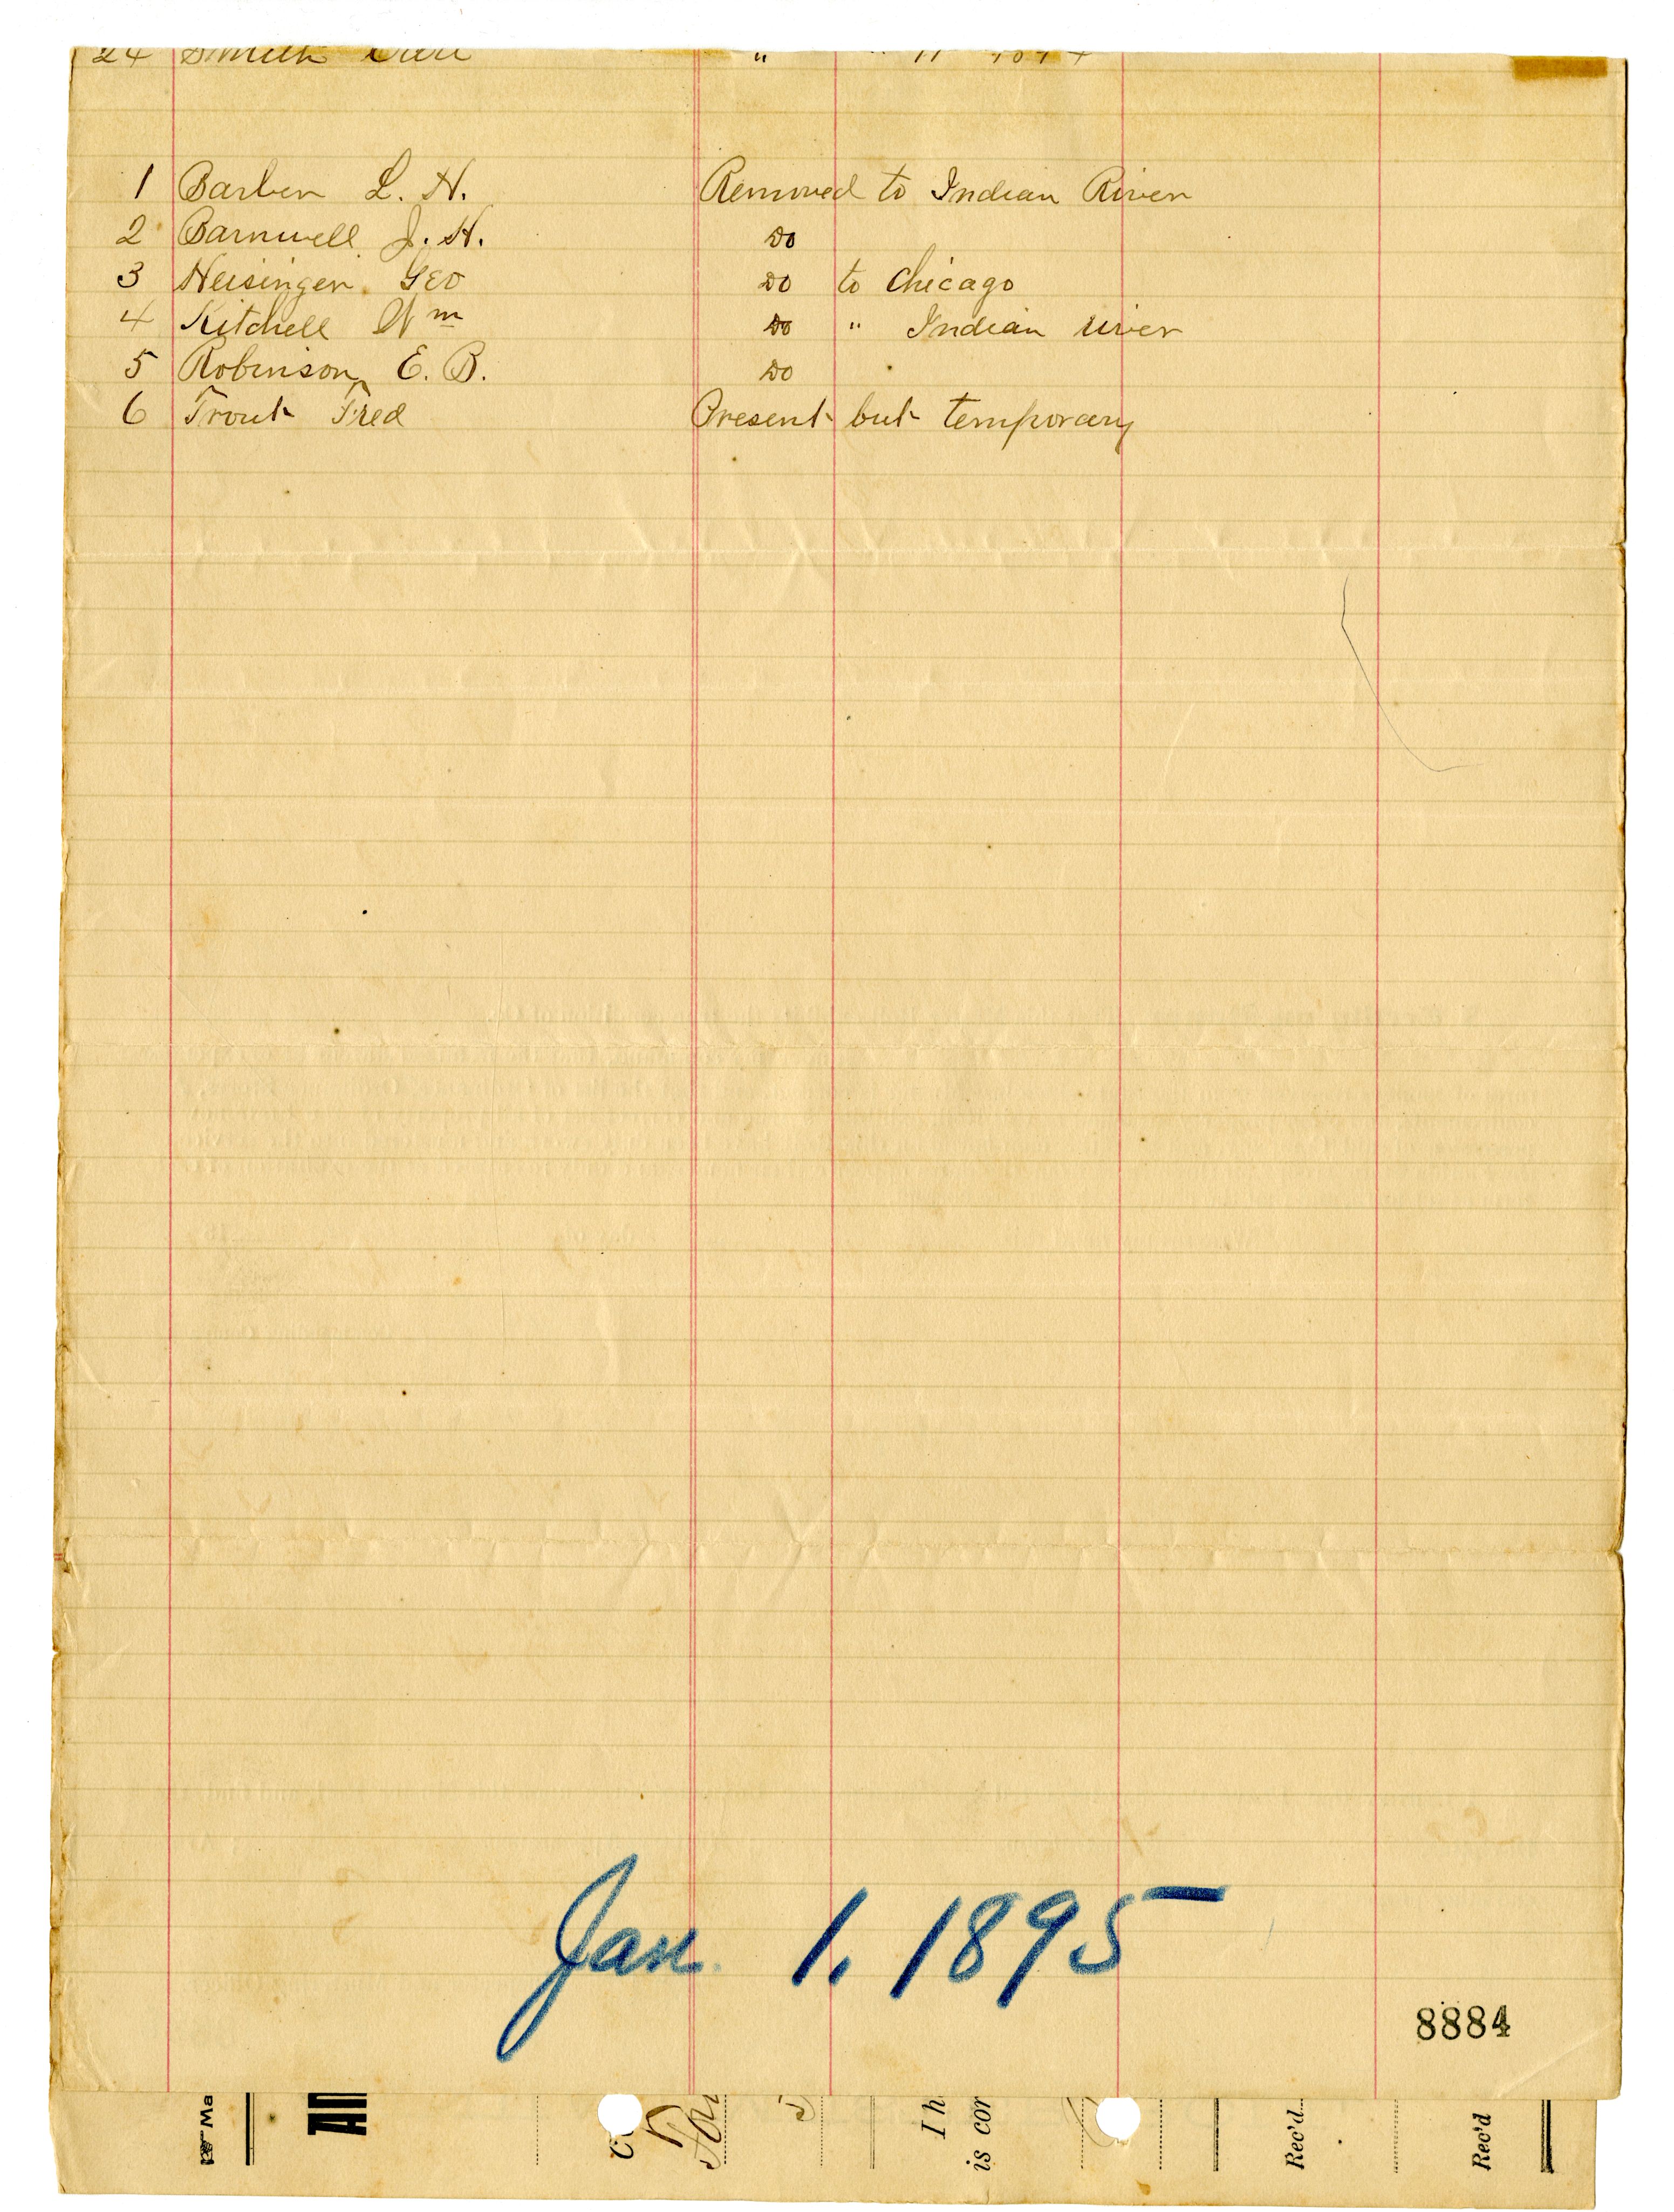 24 Smith " " 11 1894
1 Barber L. H. Removed to Indian River
2 Barnwell J. H. Do
3 Heisinger Geo Do to Chicago
4 Kitchell Wm Do " Indian river
5 Robinson E. B. Do
6 Trout Fred Present but temporary
Jan. 1. 1895
8884
Ma
I h
is cor
Rec'd
Rec'd